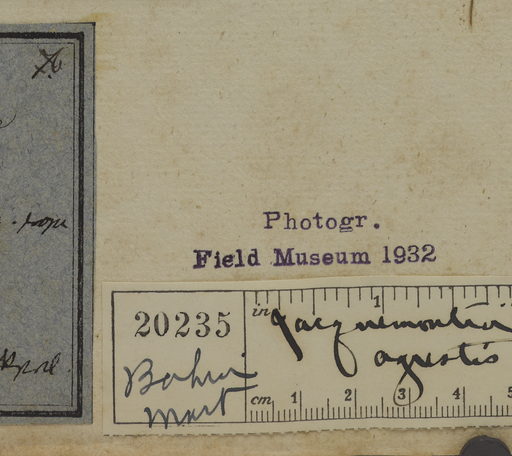 Photogr.
Field Museum 1932
20235
Bahia
Mart
in
1
Jacquemontia
agrestis
cm 1 2 3 4 5